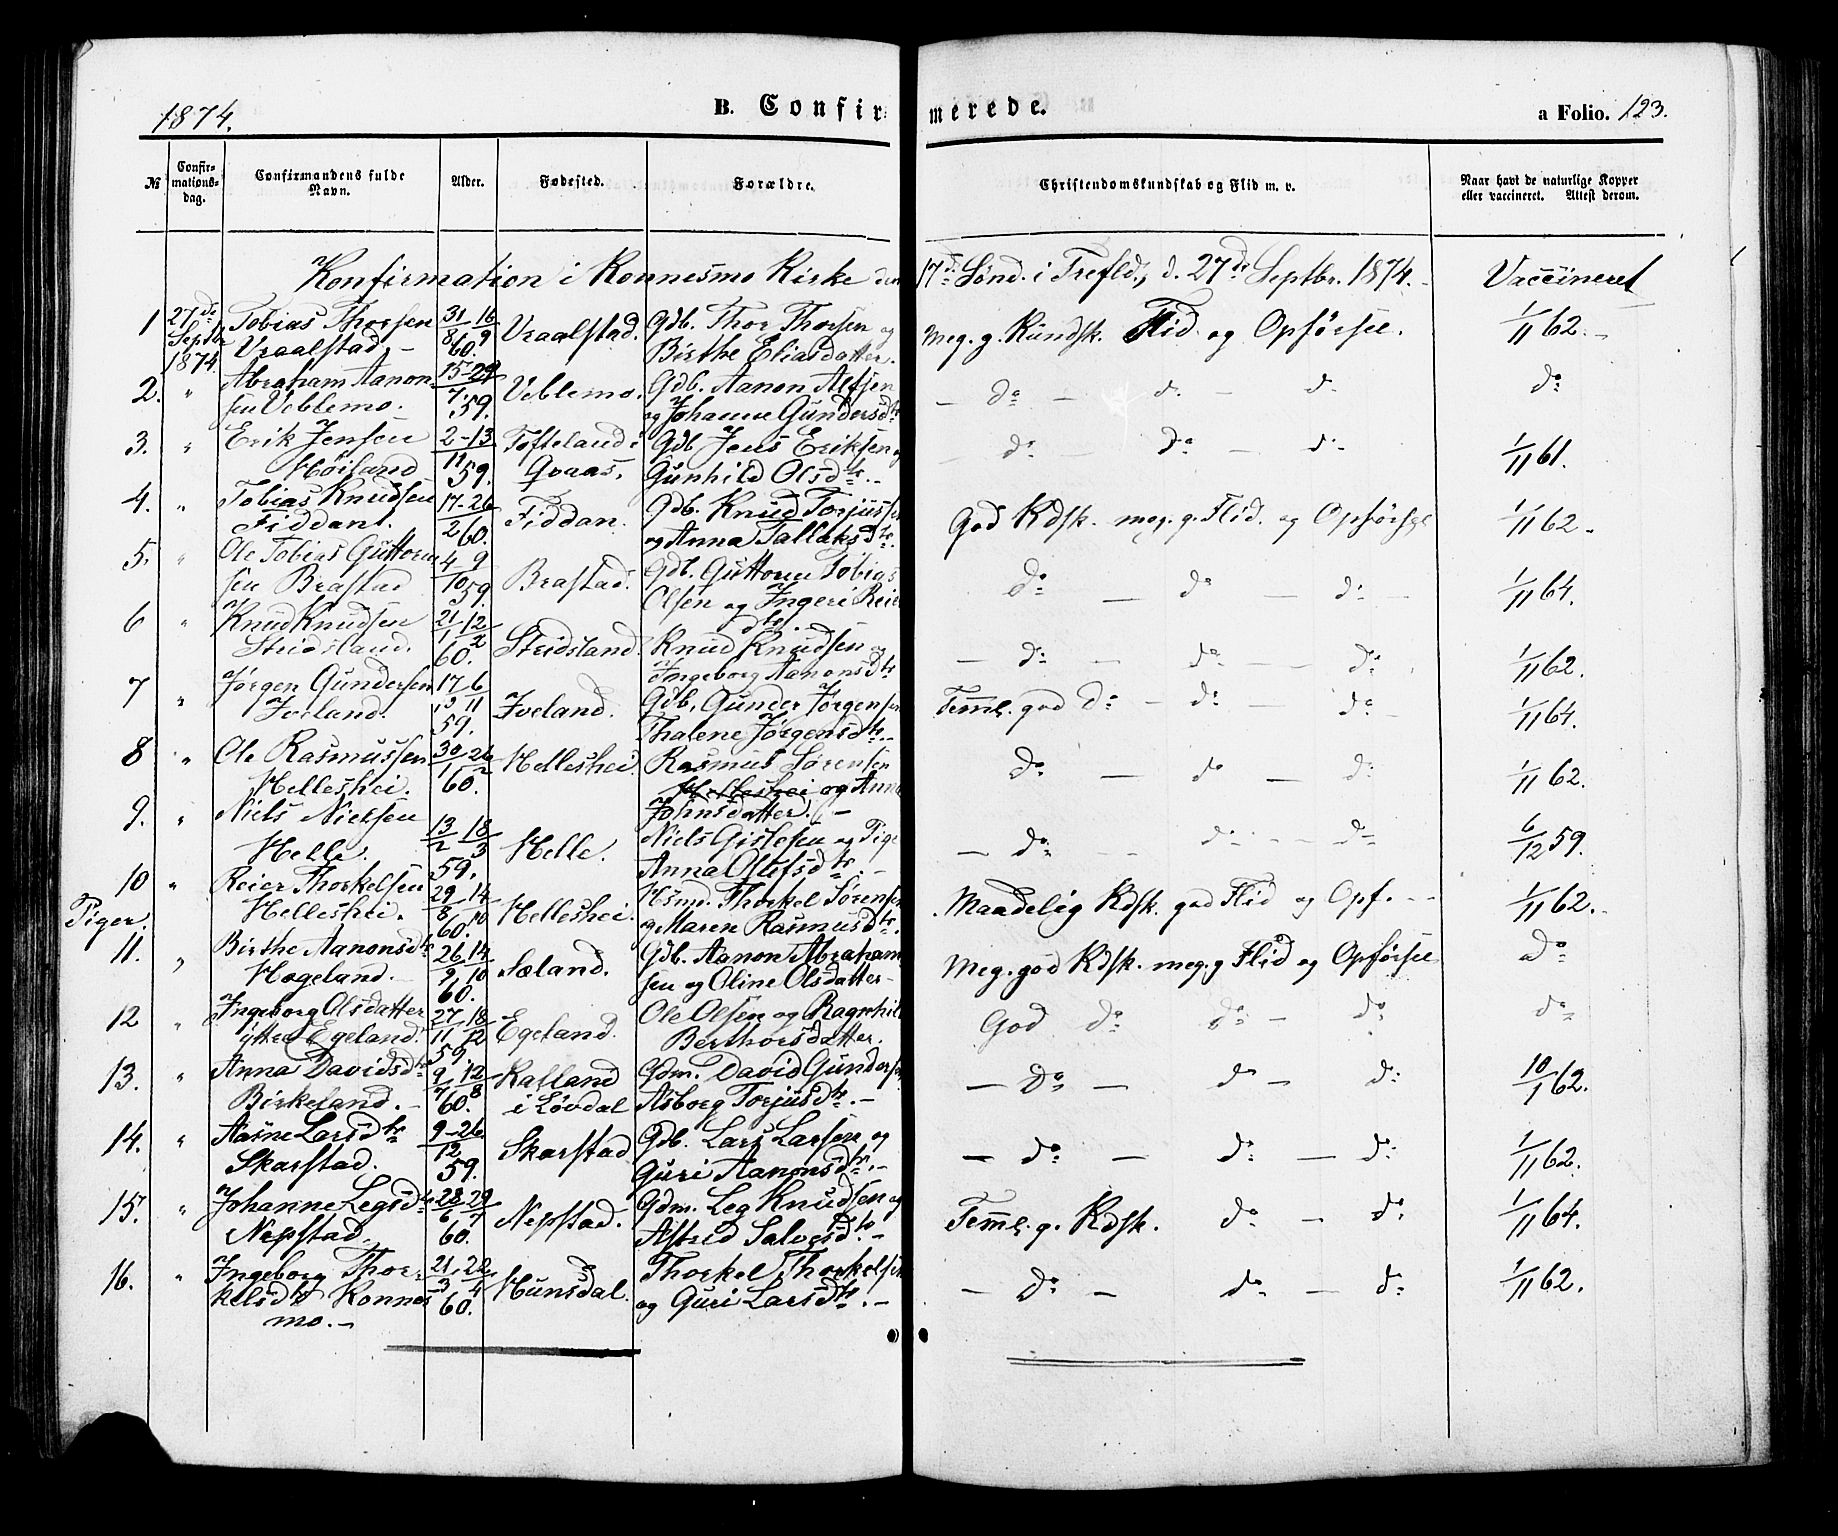 1874.
B. Confirmerede.
a Folio. 123.
№
Confirmations-dag.
Confirmandens fulde Navn.
Alder.
Fødested.
Forældre.
Christendomskundskab og Flid m. v.
Naar havt de naturlige Kopper eller vaccineret. Attest derom.
Konfirmation i Konnesmo Kirke den 17de Sønd. i Trefld., d. 27de Septbr. 1874. Vaccineret
1 27de Septbr 1874 Tobias Thorsen Vraalstad. 31/8 16/9 60. Vraalstad. Gdb. Thor Thorsen og Birthe Eliasdatter. Meg. g. Kundsk. Flid og Opførsel. 1/11 62.
2. " Abraham Aanonsen Veblemo. 15-29/7 59. Veblemo. Gdb. Aanon Alfsen og Johanne Gundersdtr do d. d. do
3. " Erik Jensen Høiland 2-13/11 59. Tofteland i Qvaas. Gdb Jens Eriksen og Gunhild Olsdtr. do do do 1/11 61.
4. " Tobias Knudsen Fiddan. 17-26/2 60. Fiddan. Gdb. Knud Torjussen og Anna Tallaksdtr. God Kdsk. meg. g. Flid. og Opførsel 1/11 62.
5. " Ole Tobias Guttormsen Brastad 4 9/10 59. Brastad. Gdb. Guttorm Tobias Olsen og Ingeri Reiersdtr. do do do 1/11 64.
6 " Knud Knudsen Stridsland. 21/1 12/2 60. Stridsland. Knud Knudsen og Ingeborg Aanonsdtr do do do 1/11 62.
7 " Jørgen Gundersen Iveland. 17 6/11 59. Iveland. Gdb. Gunder Jørgensen Thalene Jørgensdtr. Temml. god do do do 1/11 64.
8 " Ole Rasmussen Helleshei. 30/1 26/2 60. Helleshei. Rasmus Sørensen Helleshei og Anna Johnsdatter. do do do 1/11 62.
9. " Niels Nielsen Helle. 13/2 18/3 59. Helle. Niels Gislesen og Pige Anna Olufsdtr. do do do 6/12 59.
10 " Reier Thorkelsen Helleshei. 29/8 14/10 60. Helleshei. Hsmd. Thorkel Sørensen og Maren Rasmusdtr. Maadelig Kdsk. god Flid og Opf. 1/11 62.
Piger.
11. " Birthe Aanonsdtr Hageland. 26/9 14/10 60. Sæland. Gdb. Aanon Abrahamsen og Oline Olsdatter Meg. god Kdsk. meg. g Flid og Opførsel do
12 " Ingeborg Olsdatter ytter Egeland. 27/11 18/12 59. Egeland. Ole Olsen og Ragnhild Berthorsdatter. God do do do do
13. " Anna Davidsdtr Birkeland. 9/7 12/8 60. Kalland i Lövdal Gdm. David Gundersen Asborg Torjusdtr. do do do 10/1 62.
14. " Aasne Larsdtr Skarstad. 9-26/12 59. Skarstad Gdb. Lars Larsen og Guri Aanonsdtr. do do do 1/11 62.
15. " Johanne Legsdtr Nepstad. 28/6 29/7 60. Nepstad. Gdm. Leg Knudsen og Astrid Salvesdtr. Temml. g. Kdsk. do do 1/11 64.
16. " Ingeborg Thorkelsdtr Konnesmo. 21/3 22/4 60. Hunsdal. Thorkel Thorkelsen og Guri Larsdtr. do do do 1/11 62.